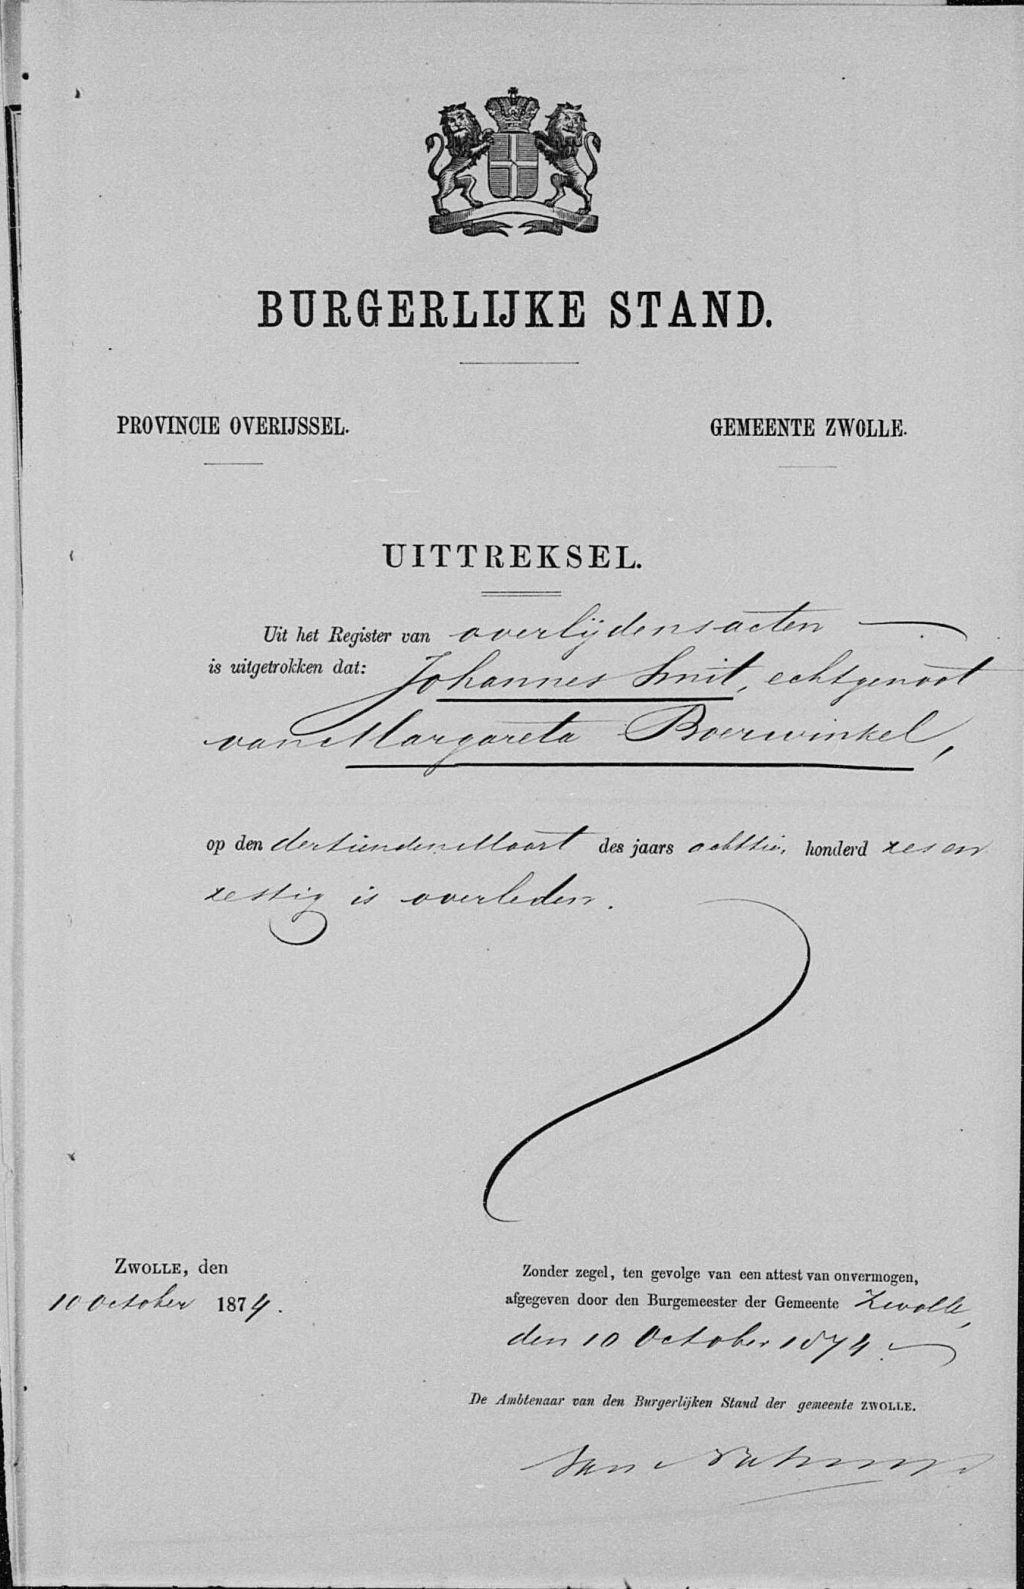 BURGERLIJKE STAND.
PROVINCIE OVERIJSSEL.
GEMEENTE ZWOLLE.
UITTREKSEL.
Uit het Register van overlijdensacten
is uitgetrokken dat: Johannes Smit, echtgenoot
van Margareta Boerwinkel,
op den dertienden Maart des jaars achttien honderd zes en
zestig is overleden.
ZWOLLE, den
10 October 1874.
Zonder zegel, ten gevolge van een attest van onvermogen,
afgegeven door den Burgemeester der Gemeente Zwolle,
den 10 October 1874.
De Ambtenaar van den Burgerlijken Stand der gemeente ZWOLLE.